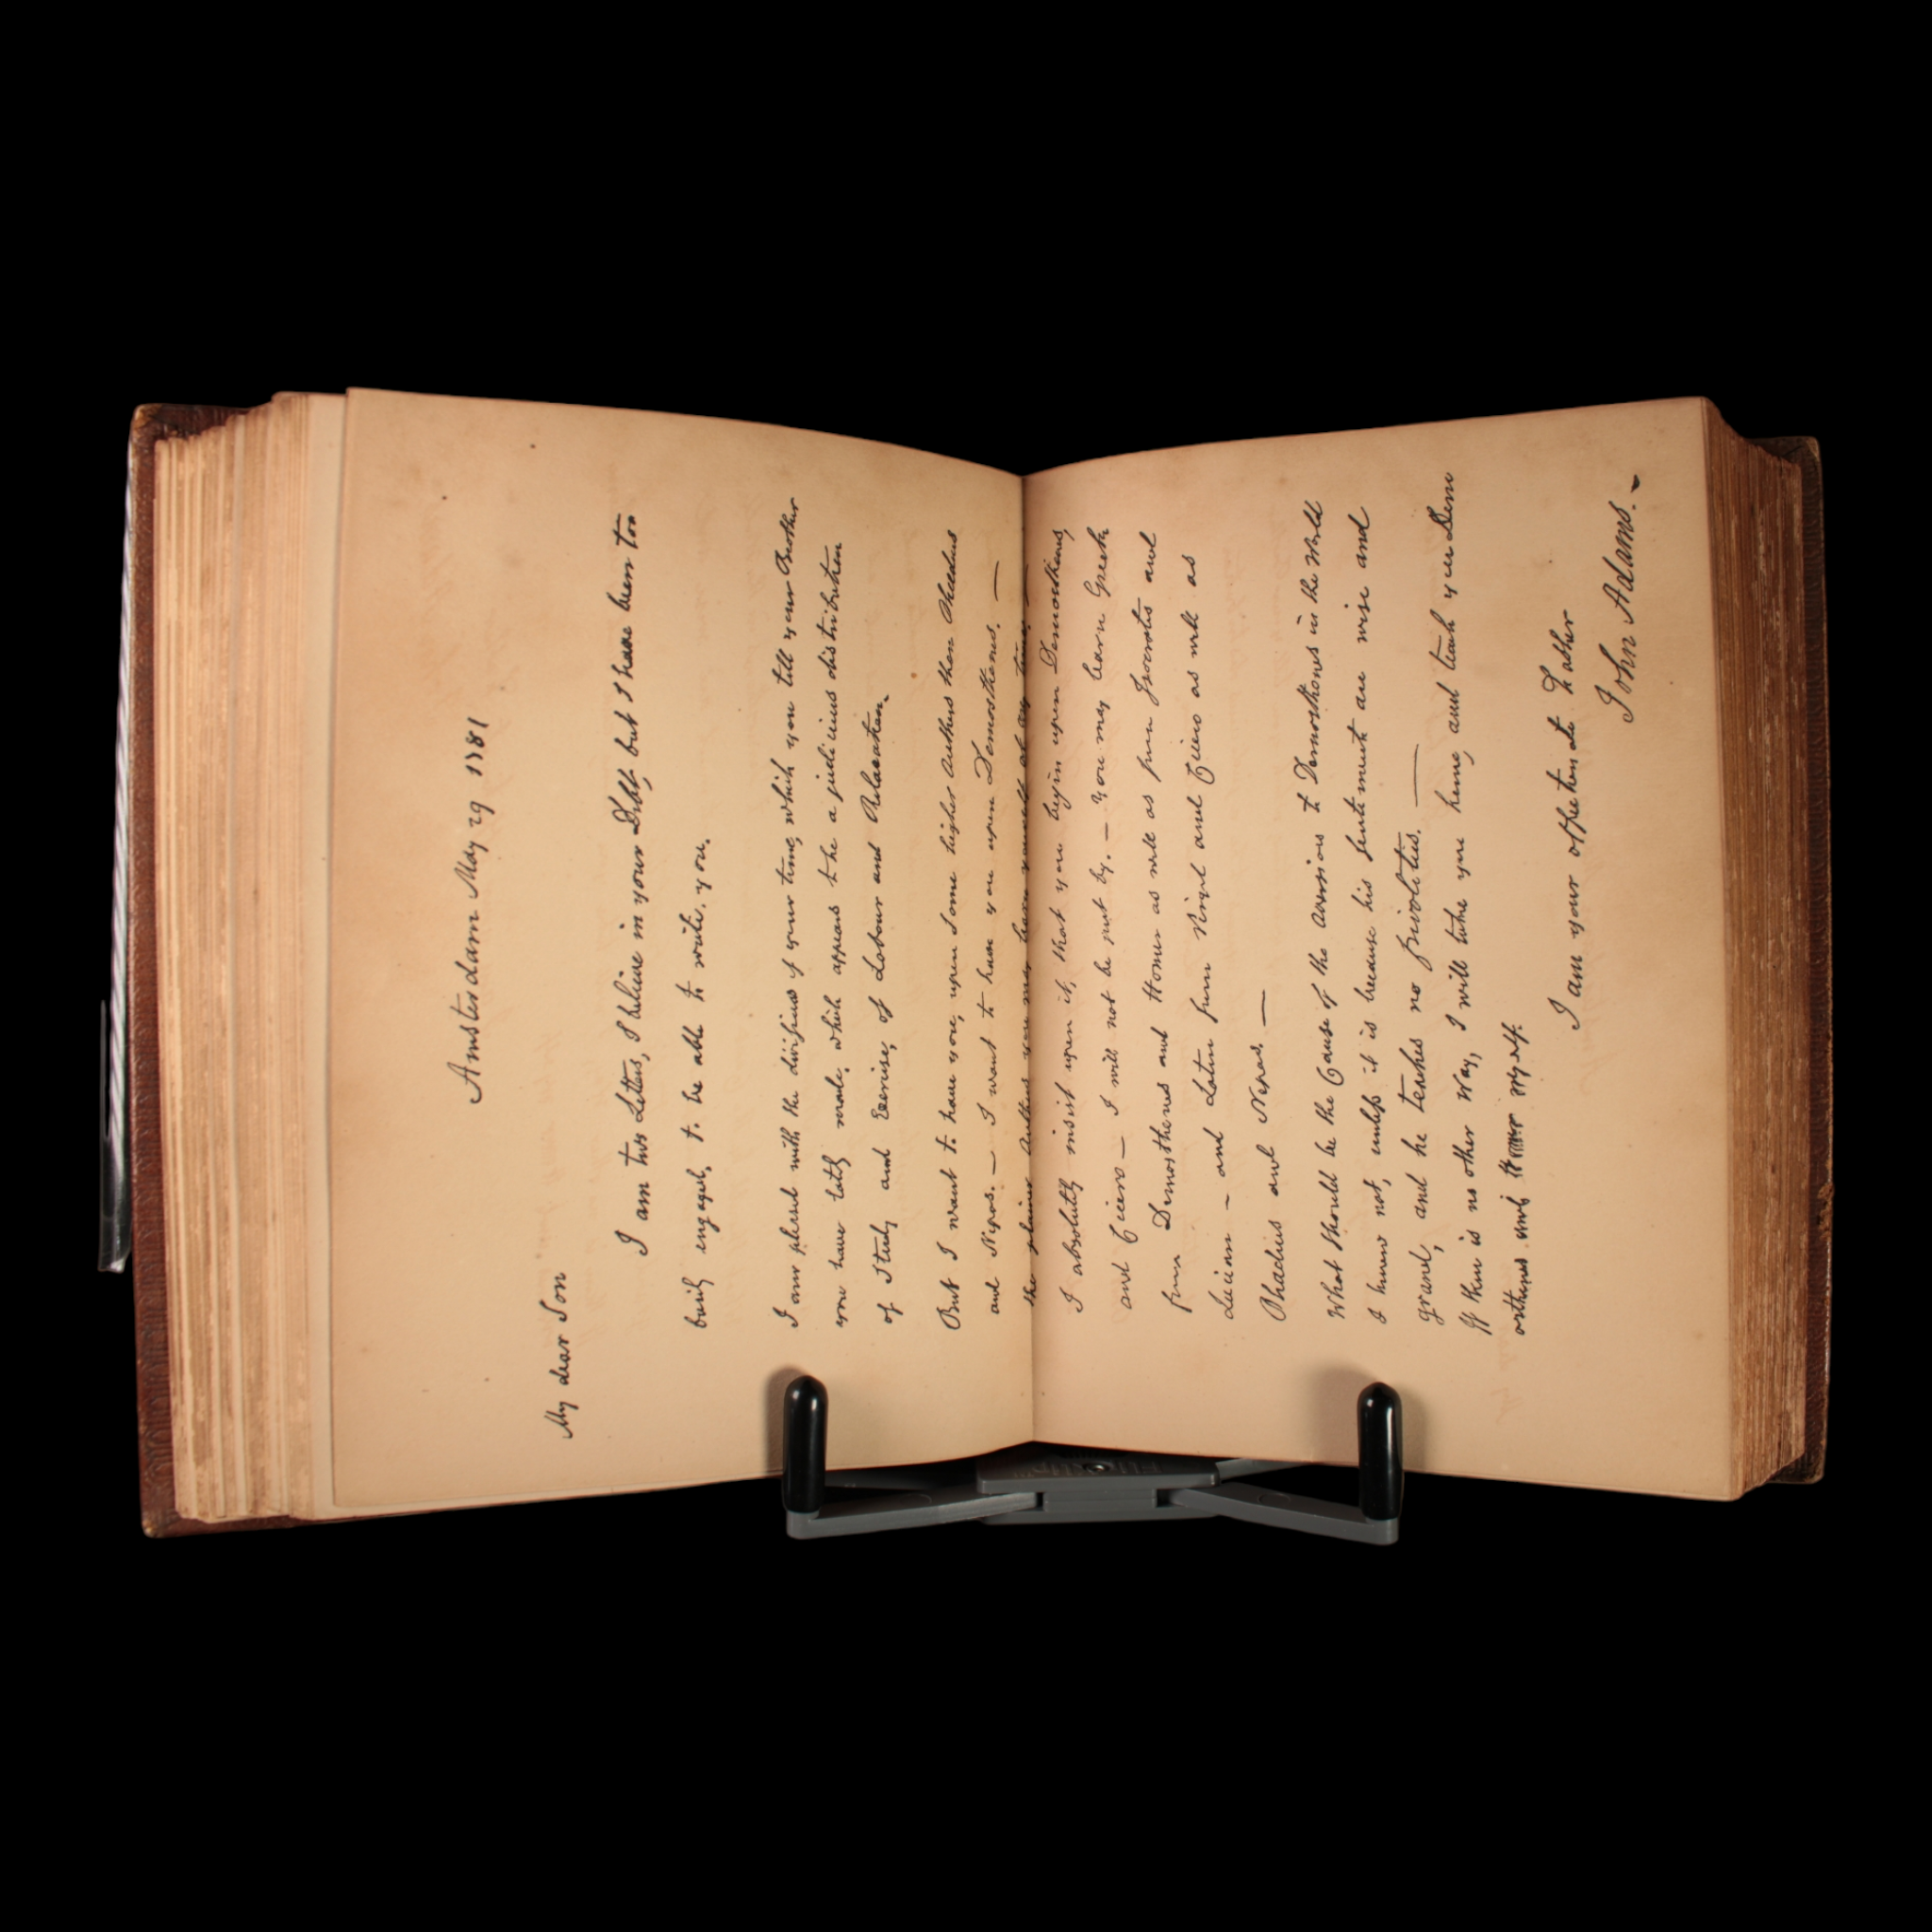 Amsterdam May 29 1781
My dear Son
I am two Letters, I believe in your Debt, but I have been too
busily engaged, to be able to write, you.
I am pleased with the division of your time, which you tell your Brother
you have lately made, which appears to be a judicious distribution
of Study and Exercise, of Labour and Relaxation.
But I want to have you, upon some higher Authors then Phædrus
and Nepos. — I want to have you upon Demosthenes. —
the plainer Authors you may learn yourself at any time. —
I absolutely insist upon it, that you begin upon Demosthenes,
and Cicero — I will not be put by. — You may learn Greek
from Demosthenes and Homer as well as from Isocrates and
Lucian — and Latin from Virgil and Cicero as well as
Phædrus and Nepos. —
What should be the Cause of the aversion to Demosthenes in the World
I know not, unless it is because his sentiments are wise and
grand, and he teaches no frivolities. —
If there is no other Way, I will take you home, and teach you Demo
osthenes and Homer myself.
I am your affectionate Father
John Adams. -